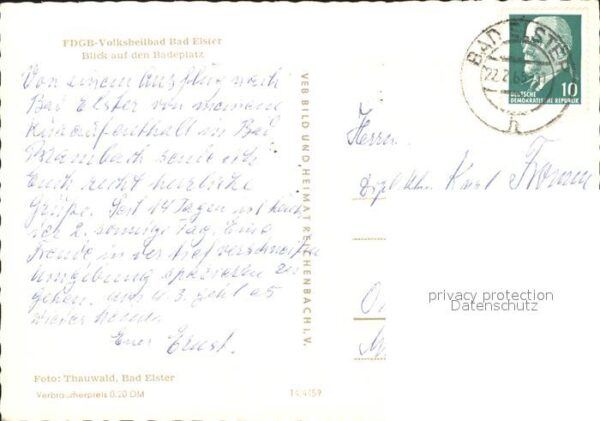 FDGB-Volksheilbad Bad Elster
Blick auf den Badeplatz
Von einem Ausflug nach
Bad Elster von meinem
Kuraufenthalt in Bad
Brambach sende ich
Euch recht herzliche
Grüße. Seit 14 Tagen ist heute
ein 2. sonniger Tag. Eine
Freude in der tief verschneiten
Umgebung spazieren zu
gehen. am 4. 3. geht es
wieder
Euer Ernst.
Foto: Thauwald, Bad Elster
Verbraucherpreis 0,20 DM
14/459
VEB BILD UND HEIMAT REICHENBACH I. V.
BAD ELSTER
22.2.65
h
10
DEUTSCHE
DEMOKRATISCHE REPUBLIK
Herrn
Karl Fromm
privacy protection
Datenschutz